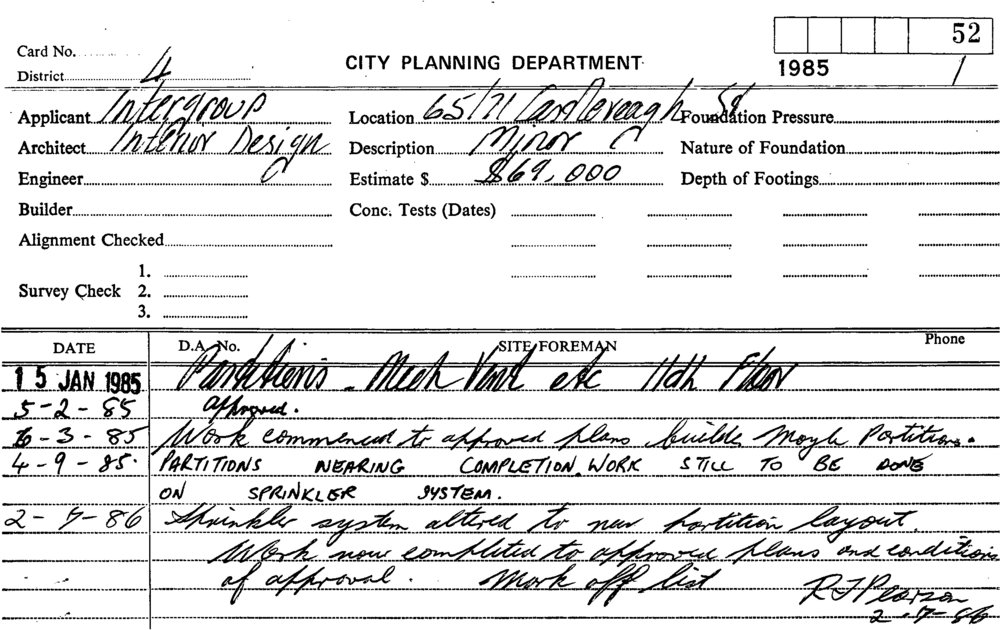 52
Card No.
District 4
CITY PLANNING DEPARTMENT
1985 /
Applicant Intergroup
Location 65/71 Castlereagh St
Foundation Pressure
Architect Interior Design
Description Minor
Nature of Foundation
Engineer
Estimate $ $69,000
Depth of Footings
Builder
Conc. Tests (Dates)
Alignment Checked
Survey Check
1.
2.
3.
DATE D.A. No. SITE FOREMAN Phone
15 JAN 1985 Partitions - Mech Vent etc 11th Floor
5-2-85 approved.
6-3-85 Work commenced to approved plans builder Moyle Partitions.
4-9-85. PARTITIONS NEARING COMPLETION. WORK STILL TO BE DONE
ON SPRINKLER SYSTEM.
2-7-86 Sprinkler system altered to new partition layout.
Work now completed to approved plans and conditions
of approval. Mark off list R F Pearson
2-7-86